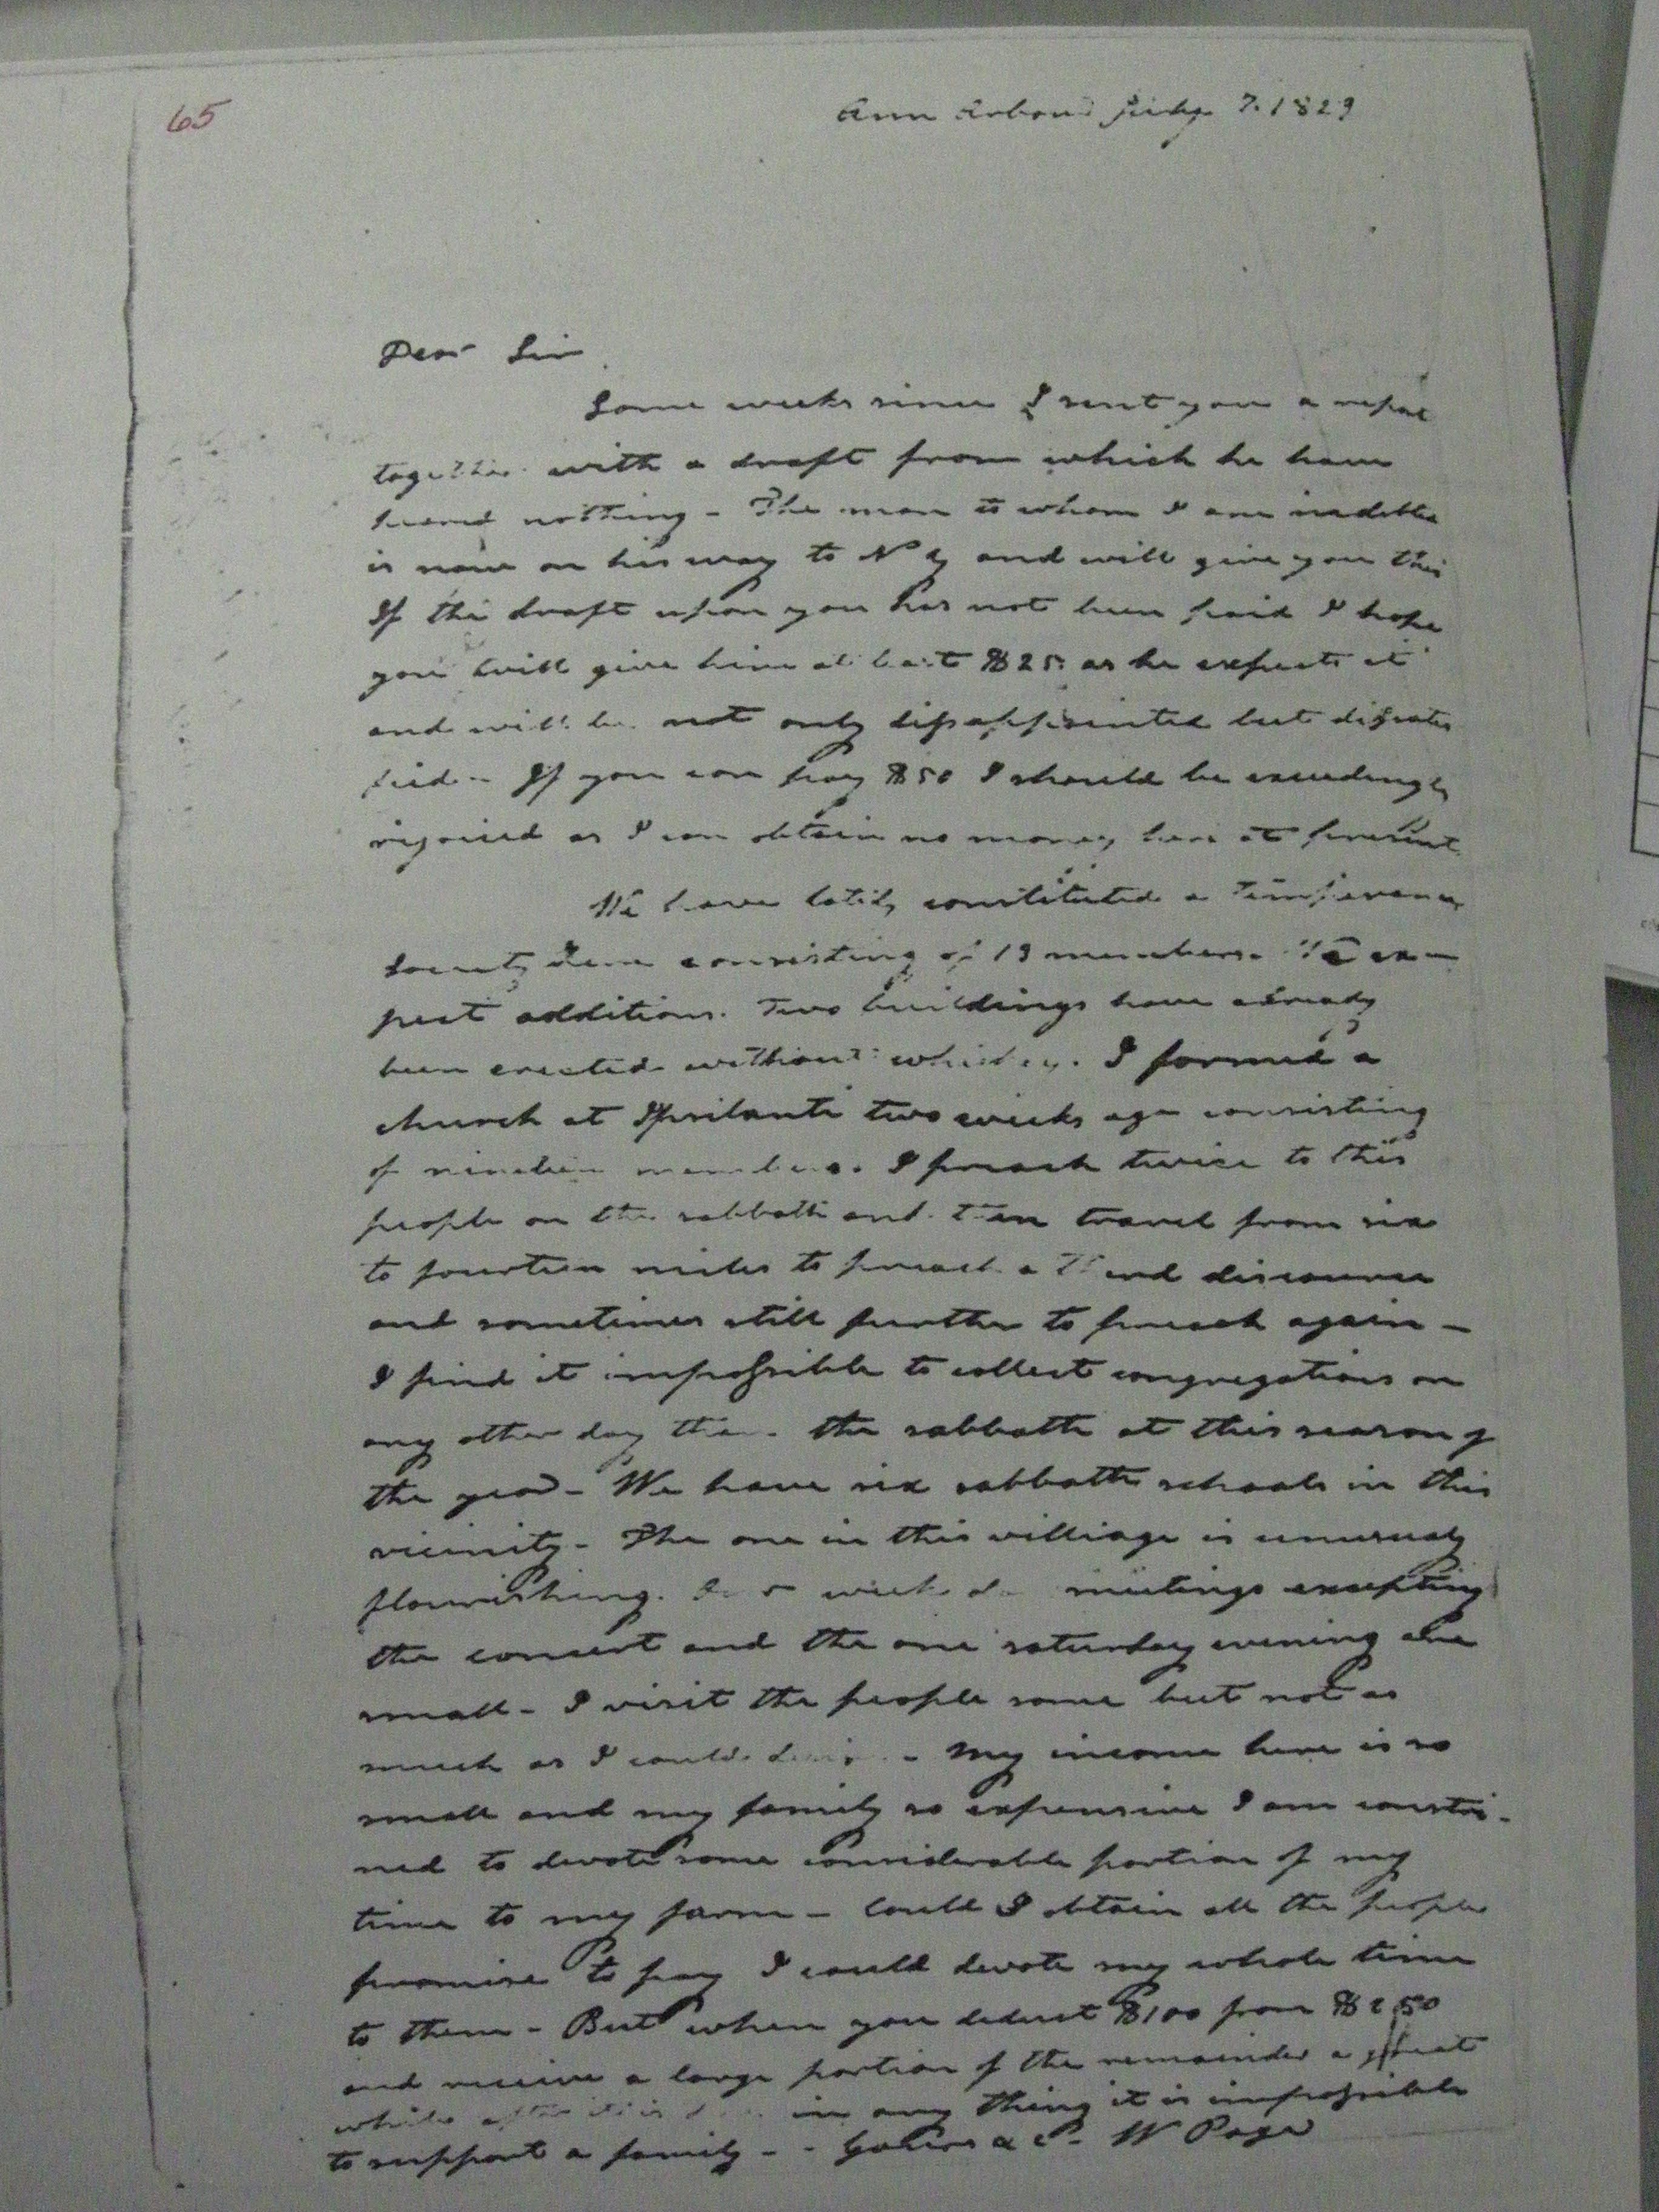 65
Ann Arbour July 7. 1829
Dear Sir
Some weeks since I sent you a report
together with a draft from which he have
heard nothing - The man to whom I am indebted
is now on his way to N Y and will give you this
If the draft upon you has not been paid I hope
you will give him at least $25. as he expects it
and will be not only disappointed but dissatis
fied - If you can pay $50 I should be exceedingly
rejoiced as I can obtain no money here at present
We have lately constituted a Temperance
Society here consisting of 13 members. We ex-
pect additions. Two buildings have already
been erected without whiskey. I formed a
church at Ypsilanti two weeks ago consisting
of nineteen members. I preach twice to this
people on the sabbath and then travel from six
to fourteen miles to preach a third discourse
and sometimes still further to preach again -
I find it impossible to collect congregations on
any other day than the sabbath at this season of
the year - We have six sabbath schools in this
vicinity - The one in this villiage is unusualy
flourishing. Our week day meetings excepting
the concert and the one saturday evening are
small - I visit the people some but not as
much as I could desire - My income here is so
small and my family so expensive I am constrai-
ned to devote some considerable portion of my
time to my farm - Could I obtain all the people
promise to pay I could devote my whole time
to them - But when you deduct $100 from $250
and receive a large portion of the remainder a great
while after it is due in any thing it is impossible
to support a family - - Yours &c. W Page